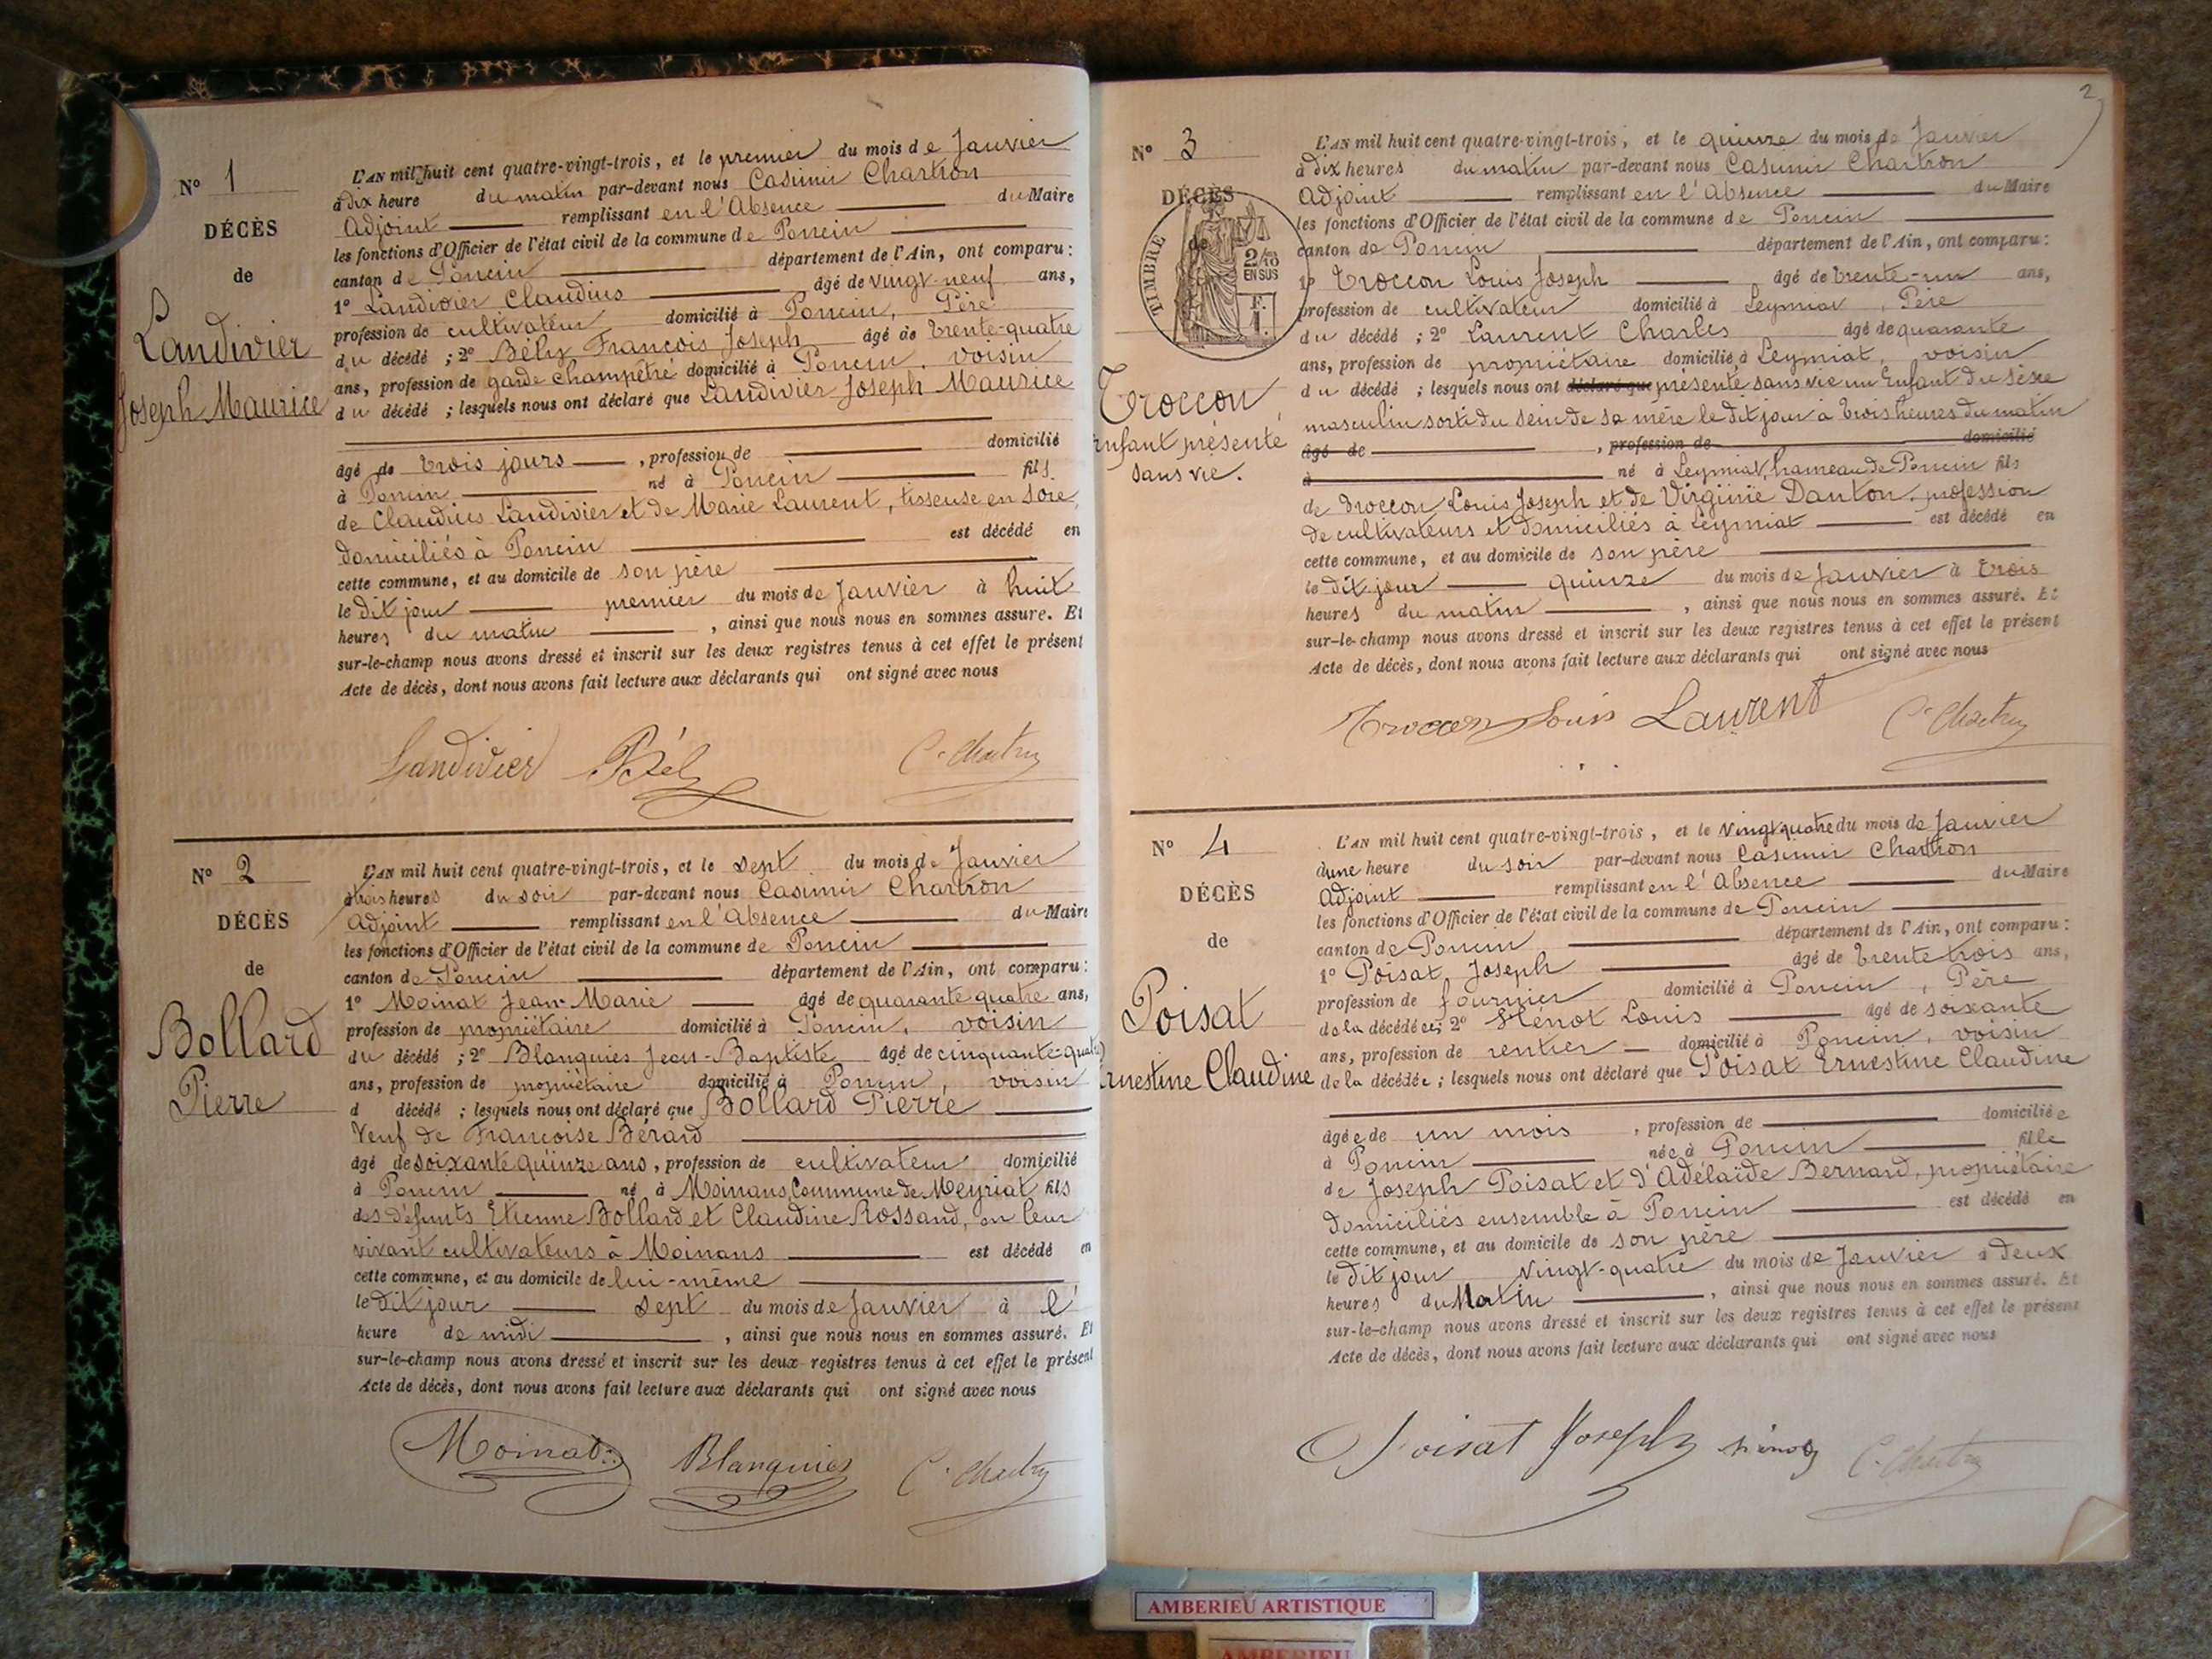 N° 1
DÉCÈS
de
Landivier
Joseph Maurice
L'AN mil huit cent quatre-vingt-trois, et le premier du mois de Janvier
à dix heure du matin par-devant nous Casimir Chartron
Adjoint remplissant en l'Absence du Maire
les fonctions d'Officier de l'état civil de la commune de Poncin
canton de Poncin département de l'Ain, ont comparu :
1° Landivier Claudius âgé de vingt-neuf ans,
profession de cultivateur domicilié à Poncin, Père
du décédé ; 2° Bély François Joseph âgé de trente-quatre
ans, profession de garde champêtre domicilié à Poncin, voisin
du décédé ; lesquels nous ont déclaré que Landivier Joseph Maurice
âgé de trois jours, profession de domicilié
à Poncin né à Poncin fils
de Claudius Landivier et de Marie Laurent, tisseuse en soie,
domiciliés à Poncin est décédé en
cette commune, et au domicile de son père
le dit jour premier du mois de Janvier à huit
heures du matin, ainsi que nous nous en sommes assuré. Et
sur-le-champ nous avons dressé et inscrit sur les deux registres tenus à cet effet le présent
Acte de décès, dont nous avons fait lecture aux déclarants qui ont signé avec nous
Landivier Bély C. Chartron
N° 2
DÉCÈS
de
Bollard
Pierre
L'AN mil huit cent quatre-vingt-trois, et le sept du mois de Janvier
à trois heures du soir par-devant nous Casimir Chartron
Adjoint remplissant en l'Absence du Maire
les fonctions d'Officier de l'état civil de la commune de Poncin
canton de Poncin département de l'Ain, ont comparu :
1° Moinat Jean-Marie âgé de quarante quatre ans,
profession de propriétaire domicilié à Poncin, voisin
du décédé ; 2° Blanquies Jean-Baptiste âgé de cinquante-quatre
ans, profession de propriétaire domicilié à Poncin, voisin
d décédé ; lesquels nous ont déclaré que Bollard Pierre
Veuf de Françoise Bérard
âgé de soixante quinze ans, profession de cultivateur domicilié
à Poncin né à Moinans, Commune de Meyriat fils
des défunts Etienne Bollard et Claudine Rossand, en leur
vivant cultivateurs à Moinans est décédé en
cette commune, et au domicile de lui-même
le dit jour sept du mois de Janvier à l'
heure de midi, ainsi que nous nous en sommes assuré. Et
sur-le-champ nous avons dressé et inscrit sur les deux registres tenus à cet effet le présent
Acte de décès, dont nous avons fait lecture aux déclarants qui ont signé avec nous
Moinat Blanquies C. Chartron
2
N° 3
DÉCÈS
de
TIMBRE
2/10
EN SUS
Troccon
Enfant présenté
sans vie.
L'AN mil huit cent quatre-vingt-trois, et le quinze du mois de Janvier
à dix heures du matin par-devant nous Casimir Chartron
Adjoint remplissant en l'Absence du Maire
les fonctions d'Officier de l'état civil de la commune de Poncin
canton de Poncin département de l'Ain, ont comparu :
1° Troccon Louis Joseph âgé de trente-un ans,
profession de cultivateur domicilié à Leymiat, Père
du décédé ; 2° Laurent Charles âgé de quarante
ans, profession de propriétaire domicilié à Leymiat, voisin
du décédé ; lesquels nous ont déclaré que présenté sans vie un Enfant du sèxe
masculin sorti du sein de sa mère le dit jour à trois heures du matin
âgé de, profession de domicilié
à né à Leymiat, hameau de Poncin fils
de Troccon Louis Joseph et de Virginie Danton, profession
de cultivateurs et domiciliés à Leymiat est décédé en
cette commune, et au domicile de son père
le dit jour quinze du mois de Janvier à trois
heures du matin, ainsi que nous nous en sommes assuré. Et
sur-le-champ nous avons dressé et inscrit sur les deux registres tenus à cet effet le présent
Acte de décès, dont nous avons fait lecture aux déclarants qui ont signé avec nous
Troccon Louis Laurent C. Chartron
N° 4
DÉCÈS
de
Poisat
Ernestine Claudine
L'AN mil huit cent quatre-vingt-trois, et le vingt quatre du mois de Janvier
à une heure du soir par-devant nous Casimir Chartron
Adjoint remplissant en l'Absence du Maire
les fonctions d'Officier de l'état civil de la commune de Poncin
canton de Poncin département de l'Ain, ont comparu :
1° Poisat Joseph âgé de trente trois ans,
profession de fournier domicilié à Poncin, Père
de la décédée ; 2° Hénot Louis âgé de soixante
ans, profession de rentier domicilié à Poncin, voisin
de la décédée ; lesquels nous ont déclaré que Poisat Ernestine Claudine
âgée de un mois, profession de domiciliée
à Poncin née à Poncin fille
de Joseph Poisat et d'Adélaïde Bernard, propriétaire
domiciliés ensemble à Poncin est décédé en
cette commune, et au domicile de son père
le dit jour vingt-quatre du mois de Janvier à deux
heures du Matin, ainsi que nous nous en sommes assuré. Et
sur-le-champ nous avons dressé et inscrit sur les deux registres tenus à cet effet le présent
Acte de décès, dont nous avons fait lecture aux déclarants qui ont signé avec nous
Poisat Joseph hénot C. Chartron
AMBERIEU ARTISTIQUE
AMBERIEU